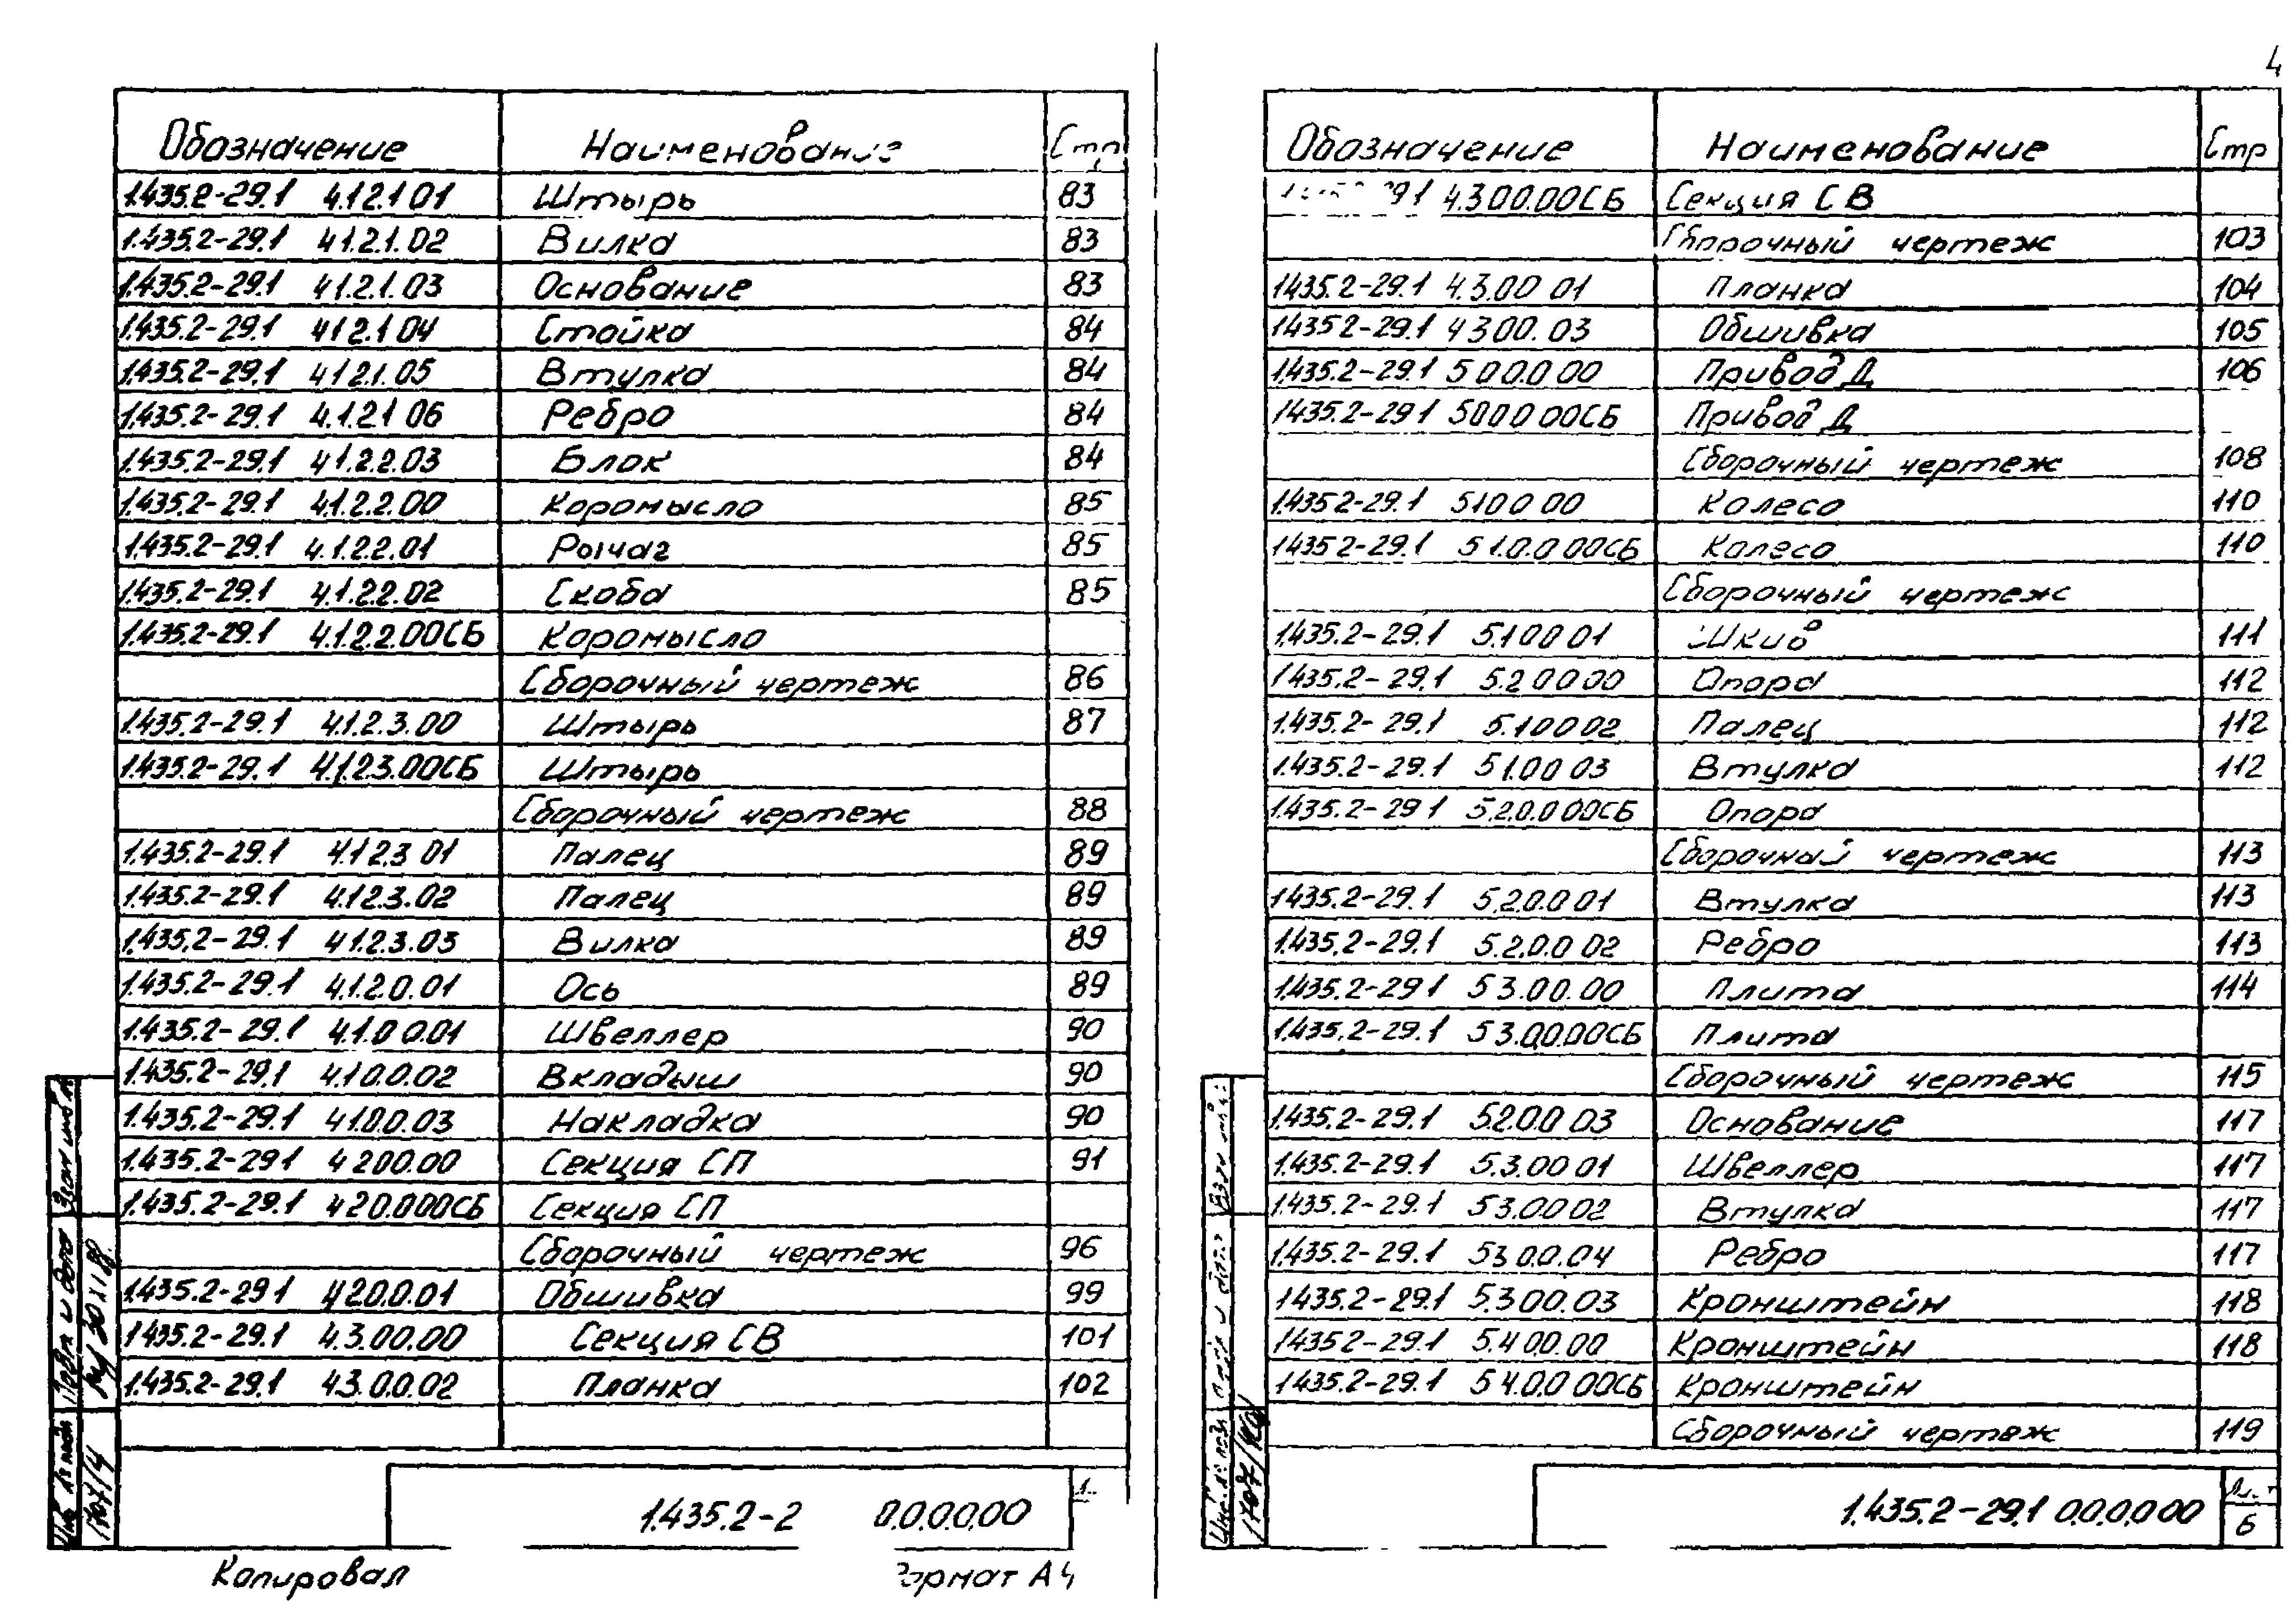 4
Обозначение Наименование Стр
1.435.2-29.1 4.1.2.1 01 Штырь 83
1.435.2-29.1 4.1.2.1.02 Вилка 83
1.435.2-29.1 4.1.2.1.03 Основание 83
1.435.2-29.1 4.1.2.1 04 Стойка 84
1.435.2-29.1 4.1.2.1.05 Втулка 84
1.435.2-29.1 4.1.2.1 06 Ребро 84
1.435.2-29.1 4.1.2.2.03 Блок 84
1.435.2-29.1 4.1.2.2.00 Коромысло 85
1.435.2-29.1 4.1.2.2.01 Рычаг 85
1.435.2-29.1 4.1.2.2.02 Скоба 85
1.435.2-29.1 4.1.2.2.00СБ Коромысло
Сборочный чертеж 86
1.435.2-29.1 4.1.2.3.00 Штырь 87
1.435.2-29.1 4.1.2.3.00СБ Штырь
Сборочный чертеж 88
1.435.2-29.1 4.1.2.3 01 Палец 89
1.435.2-29.1 4.1.2.3.02 Палец 89
1.435.2-29.1 4.1.2.3.03 Вилка 89
1.435.2-29.1 4.1.2.0.01 Ось 89
1.435.2-29.1 4.1.0 0.01 Швеллер 90
1.435.2-29.1 4.1 0.0.02 Вкладыш 90
1.435.2-29.1 4.1.0.0.03 Накладка 90
1.435.2-29.1 4 2 0 0.00 Секция СП 91
1.435.2-29.1 4 2 0.0.00СБ Секция СП
Сборочный чертеж 96
1.435.2-29.1 4 2 0.0.01 Обшивка 99
1.435.2-29.1 4.3.0 0.00 Секция СВ 101
1.435.2-29.1 4.3.0.0.02 Планка 102
1.435.2-2 0.0.0.0.00
Копировал
Формат А4
Обозначение Наименование Стр
29.1 4.3 0 0.00СБ Секция СВ
Сборочный чертеж 103
1.435.2-29.1 4.3.0 0 01 Планка 104
1.435 2-29.1 4 3 0 0. 03 Обшивка 105
1.435.2-29.1 5 0 0.0 00 Привод Д 106
1.435.2-29.1 5 0 0 0 00СБ Привод Д
Сборочный чертеж 108
1.435 2-29.1 5 1 0 0 00 Колесо 110
1.435 2-29.1 5 1.0.0 00СБ Колесо 110
Сборочный чертеж
1.435.2-29.1 5.1 0 0 01 Шкив 111
1.435.2-29.1 5.2 0 0 00 Опора 112
1.435.2-29.1 5.1 0 0 02 Палец 112
1.435.2-29.1 5 1.0 0 03 Втулка 112
1.435.2-29 1 5.2.0.0 00СБ Опора
Сборочный чертеж 113
1.435.2-29.1 5.2.0.0 01 Втулка 113
1.435.2-29.1 5.2.0.0 02 Ребро 113
1.435.2-29 1 5 3.0 0.00 Плита 114
1.435.2-29.1 5 3.0.0.00СБ Плита
Сборочный чертеж 115
1.435.2-29.1 5.2.0 0 03 Основание 117
1.435.2-29.1 5.3.0 0 01 Швеллер 117
1.435.2-29.1 5 3.0 0 02 Втулка 117
1.435.2-29.1 5 3 0.0.04 Ребро 117
1.435.2-29.1 5.3 0 0.03 Кронштейн 118
1.435 2-29.1 5.4 0 0.00 Кронштейн 118
1.435.2-29.1 5 4.0.0 00СБ Кронштейн
Сборочный чертеж 119
1.435.2-29.1 0.0.0.0 00
6